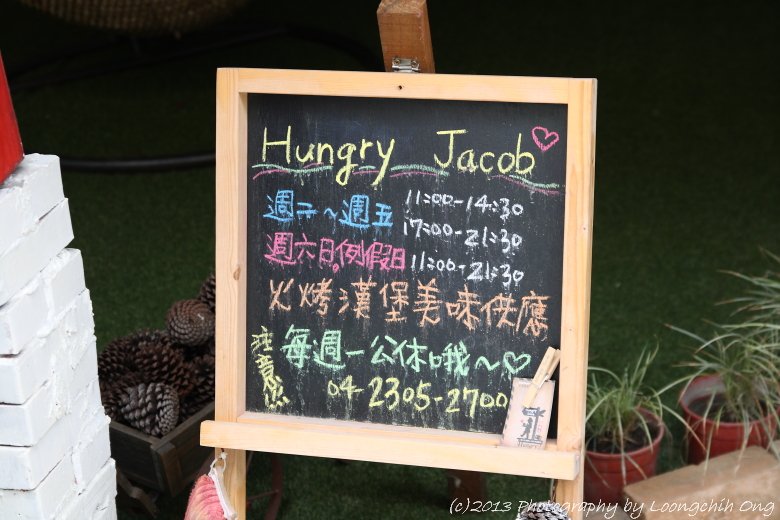 Hungry Jacob
週二~週五 11:00-14:30
17:00-21:30
週六日.例假日 11:00-21:30
火烤漢堡美味供應
注意!!
每週一公休哦~
04-2305-2700
(c)2013 Photography by Loongchih Ong